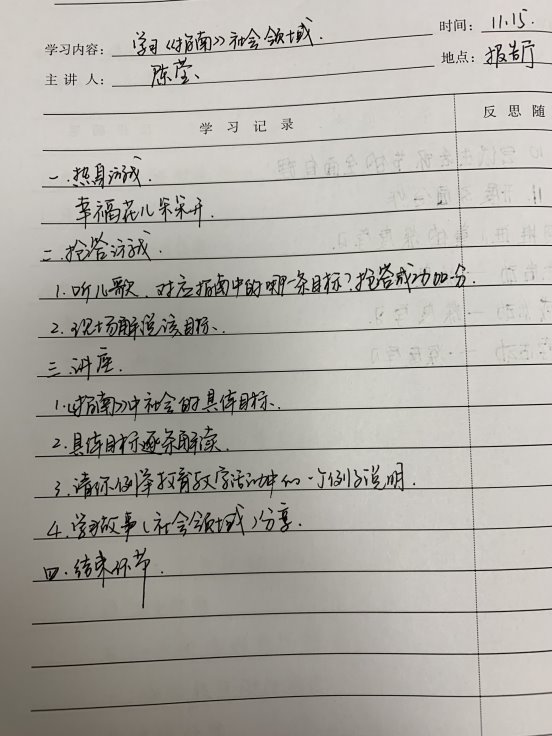 学习内容: 学习《指南》社会领域. 时间: 11.15.
主讲人: 陈莹、 地点: 报告厅
学习记录 反思随
一.热身游戏.
幸福花儿朵朵开.
二.抢答游戏.
1.听儿歌,对应指南中的哪一条目标?抢答成功加分.
2.现场解说该目标.
三.讲座.
1.《指南》中社会的具体目标.
2.具体目标逐条解读.
3.请你例举教育教学活动中的一个例子说明.
4.学习故事(社会领域)分享.
四.结束环节.